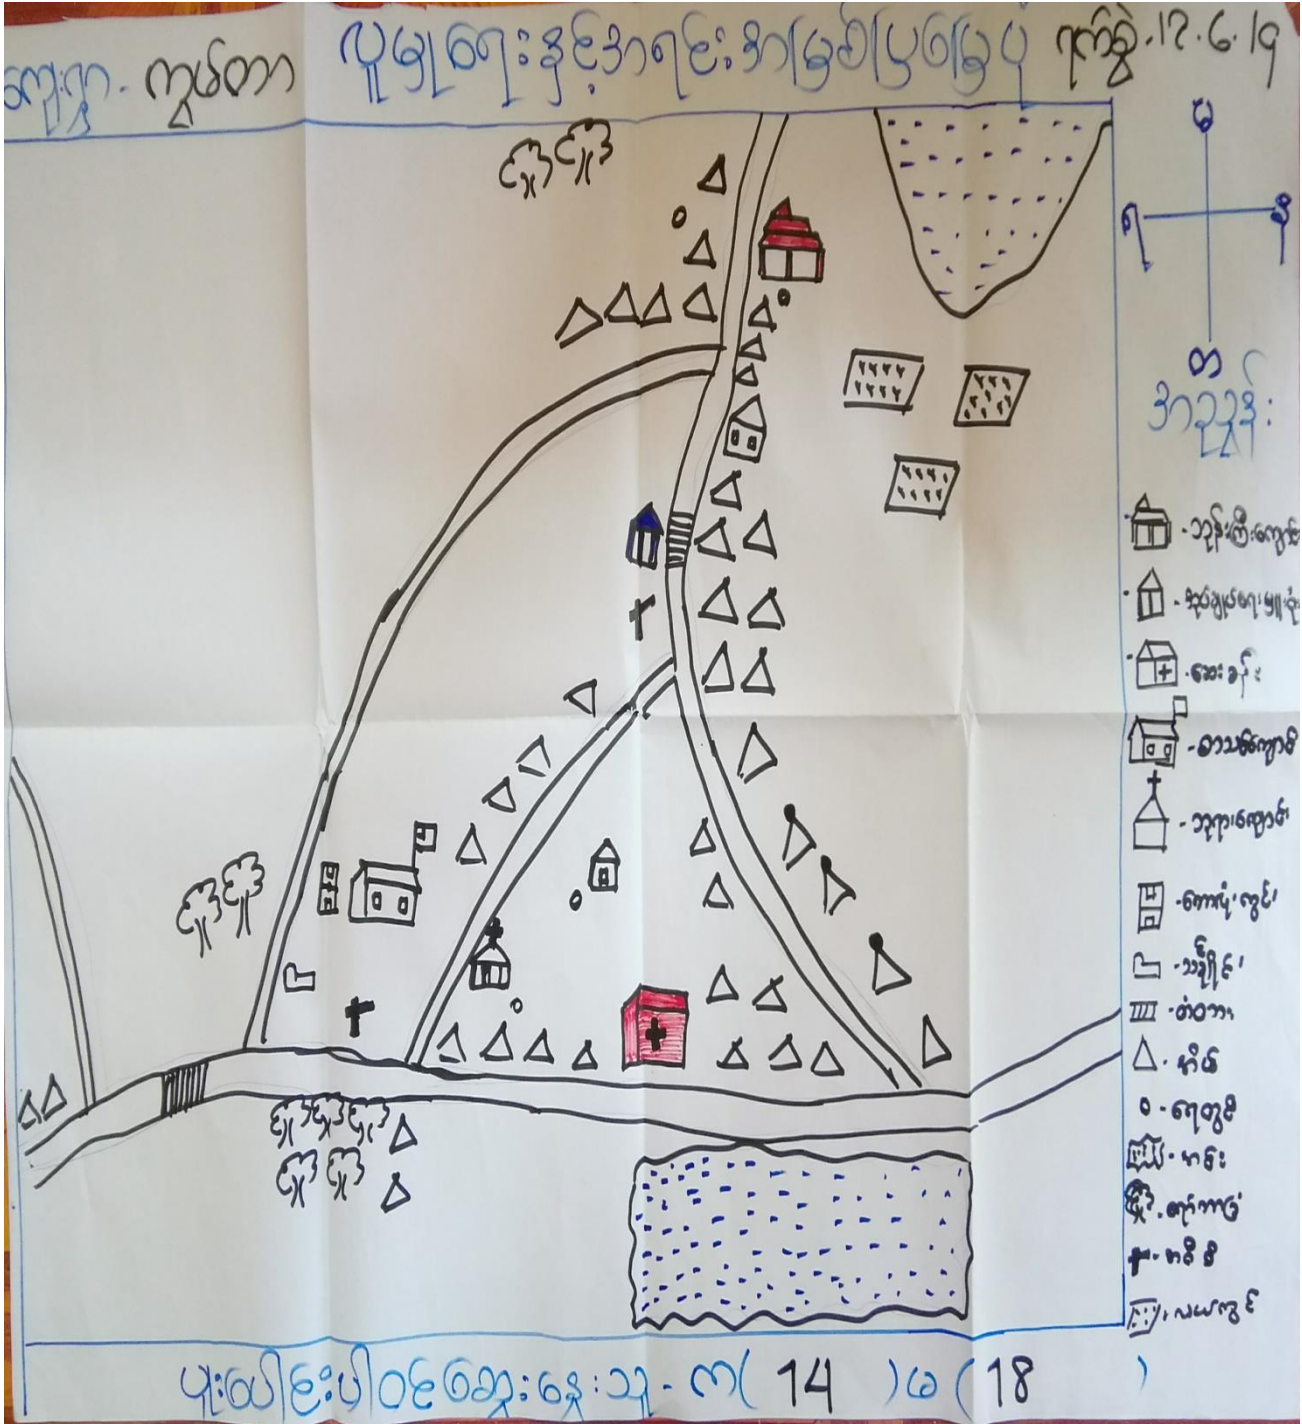 ကျေးရွာ - ကွမ်တာ လူမှုရေးနှင့်အရင်းအမြစ်ပြမြေပုံ ရက်စွဲ.၁၃.၆.၂၄
မ
ရ
နိ
တ
အညွှန်း
- ဘုန်းကြီးကျောင်း
- အုပ်ချုပ်ရေးမှူးရုံး
- ဆေးခန်း
- စာသင်ကျောင်း
- ဘုရားကျောင်း
- ဘောလုံးကွင်း
- သင်္ချိုင်း
- တံတား
- အိမ်
- ရေတွင်း
- ရော်ဘာခြံ
- လယ်ကွင်း
ပူးပေါင်းပါဝင်ဆွေးနွေးသူ - ကျ( 14 )မ ( 18 )